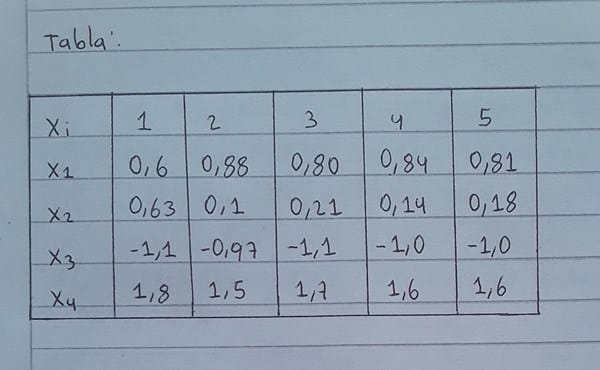 Tabla:
Xi 1 2 3 4 5
X1 0,6 0,88 0,80 0,84 0,81
X2 0,63 0,1 0,21 0,14 0,18
X3 -1,1 -0,97 -1,1 -1,0 -1,0
X4 1,8 1,5 1,7 1,6 1,6